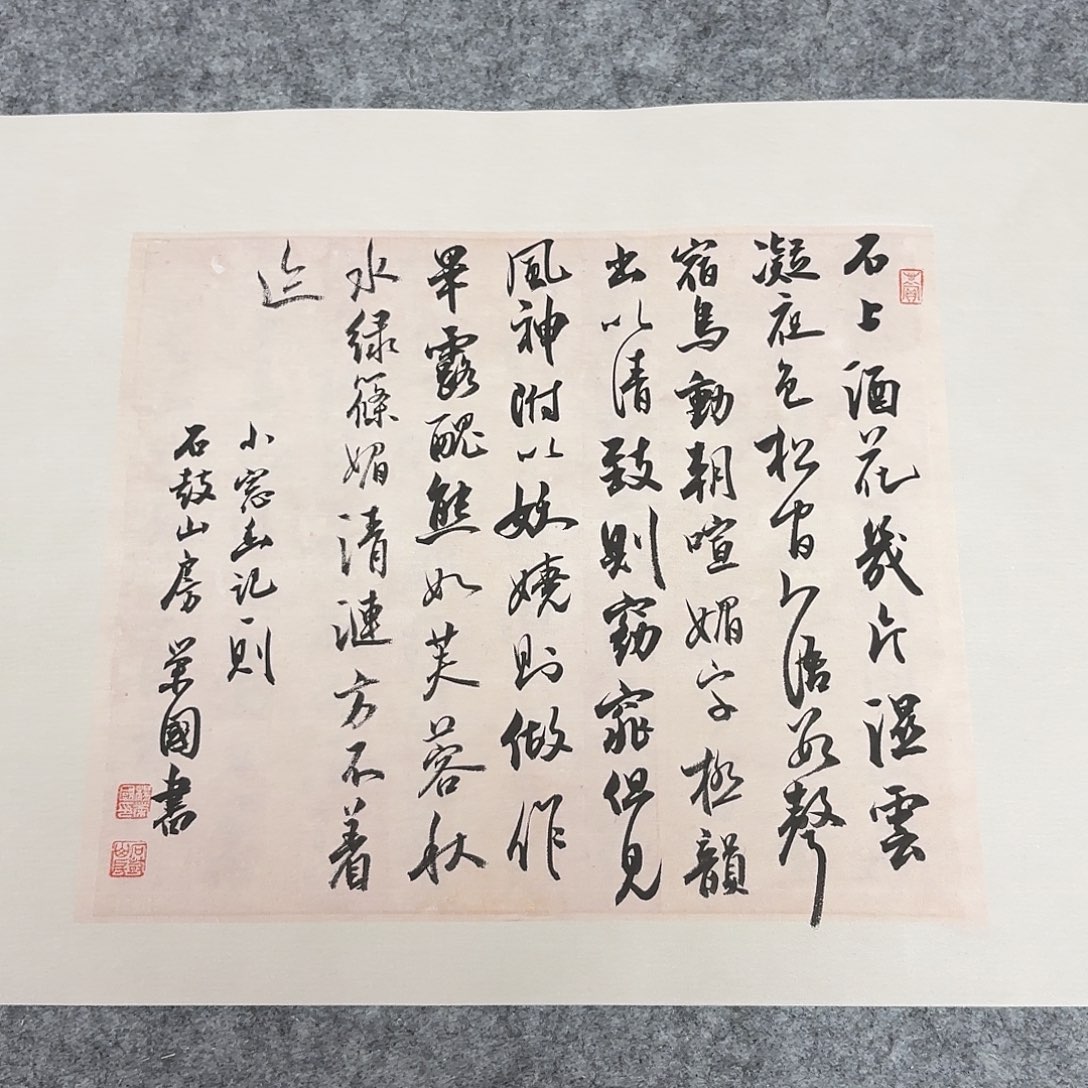 石上酒花幾片湿雲
凝夜色松間人語數聲
宿鳥動朝喧媚字極韻
出以清致則窈窕但見
風神附以妖嬈則做作
畢露醜態如芙蓉秋
水綠篠媚清漣方不着
迹
小窓幽記一則
石鼓山房榮國書